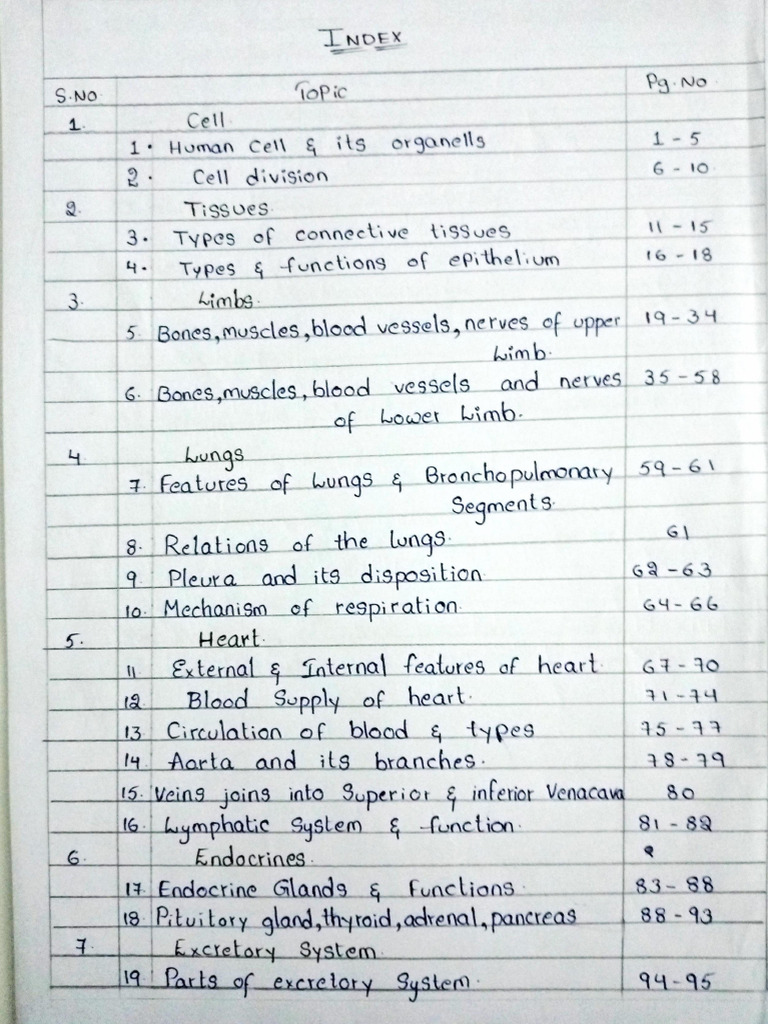 INDEX
S.NO Topic Pg.No
1. Cell.
1. Human Cell & its organells 1 - 5
2. Cell division 6 - 10
2. Tissues.
3. Types of connective tissues 11 - 15
4. Types & functions of epithelium 16 - 18
3. Limbs.
5. Bones,muscles,blood vessels,nerves of upper 19 - 34
Limb.
6. Bones,muscles,blood vessels and nerves 35 - 58
of Lower Limb.
4 Lungs
7. Features of Lungs & Bronchopulmonary 59 - 61
Segments.
8. Relations of the lungs. 61
9. Pleura and its disposition. 62 - 63
10. Mechanism of respiration. 64 - 66
5. Heart.
11 External & Internal features of heart. 67 - 70
12 Blood Supply of heart. 71 - 74
13 Circulation of blood & types 75 - 77
14. Aorta and its branches. 78 - 79
15. Veins joins into Superior & inferior Venacava 80
16. Lymphatic System & function. 81 - 82
6. Endocrines.
17. Endocrine Glands & Functions. 83 - 88
18. Pituitory gland,thyroid,adrenal,pancreas 88 - 93
7. Excretory System.
19. Parts of excretory System. 94 - 95